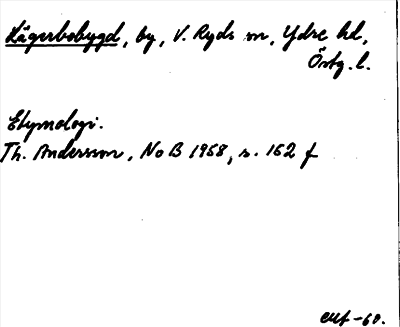 Lägerbobygd, by, V. Ryds sn, Ydre hd,
Östg. l.
Etymologi.
Th. Andersson, NoB 1958, s. 152 f